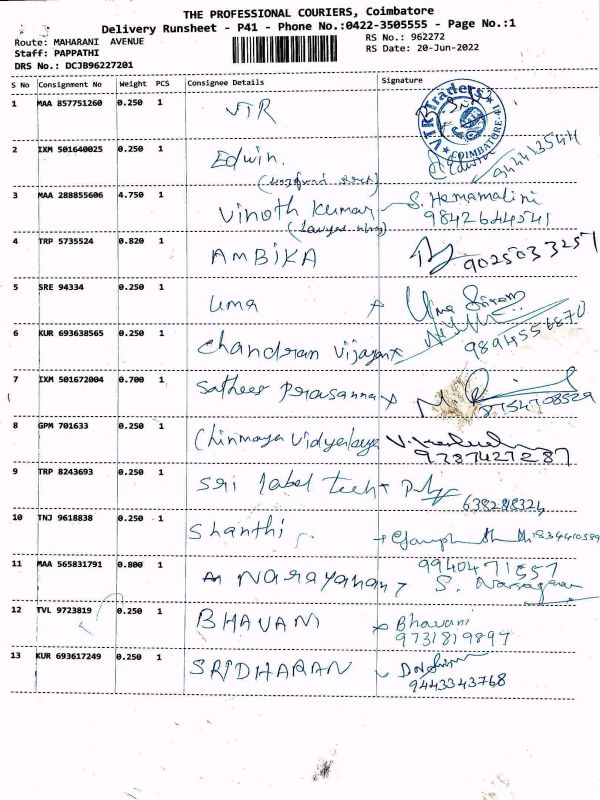 THE PROFESSIONAL COURIERS, Coimbatore
Delivery Runsheet - P41 - Phone No.:0422-3505555 - Page No.:1
Route: MAHARANI AVENUE RS No.: 962272
Staff: PAPPATHI RS Date: 20-Jun-2022
DRS No.: DCJB96227201
S No Consignment No Weight PCS Consignee Details Signature
1 MAA 857751260 0.250 1 VTR VTR Traders COIMBATORE
2 IXM 501640025 0.250 1 Edwin. Edwin
3 MAA 288855606 4.750 1 Vinoth Kumar S. Hemamalini
9842644541
4 TRP 5735524 0.820 1 AMBIKA 9025033257
5 SRE 94334 0.250 1 uma Uma Sriram
6 KUR 693638565 0.250 1 Chandran Vijayan 9894556870
7 IXM 501672004 0.700 1 Sathees Prasanna 8754708529
8 GPM 701633 0.250 1 Chinmaya Vidyalaya
9787427287
9 TRP 8243693 0.250 1 Sri label tech
10 TNJ 9618838 0.250 1 Shanthi
11 MAA 565831791 0.800 1 Narayanan 9940471557
12 TVL 9723819 0.250 1 BHAVANI Bhavani
9731819897
13 KUR 693617249 0.250 1 SRIDHARAN
9443343768